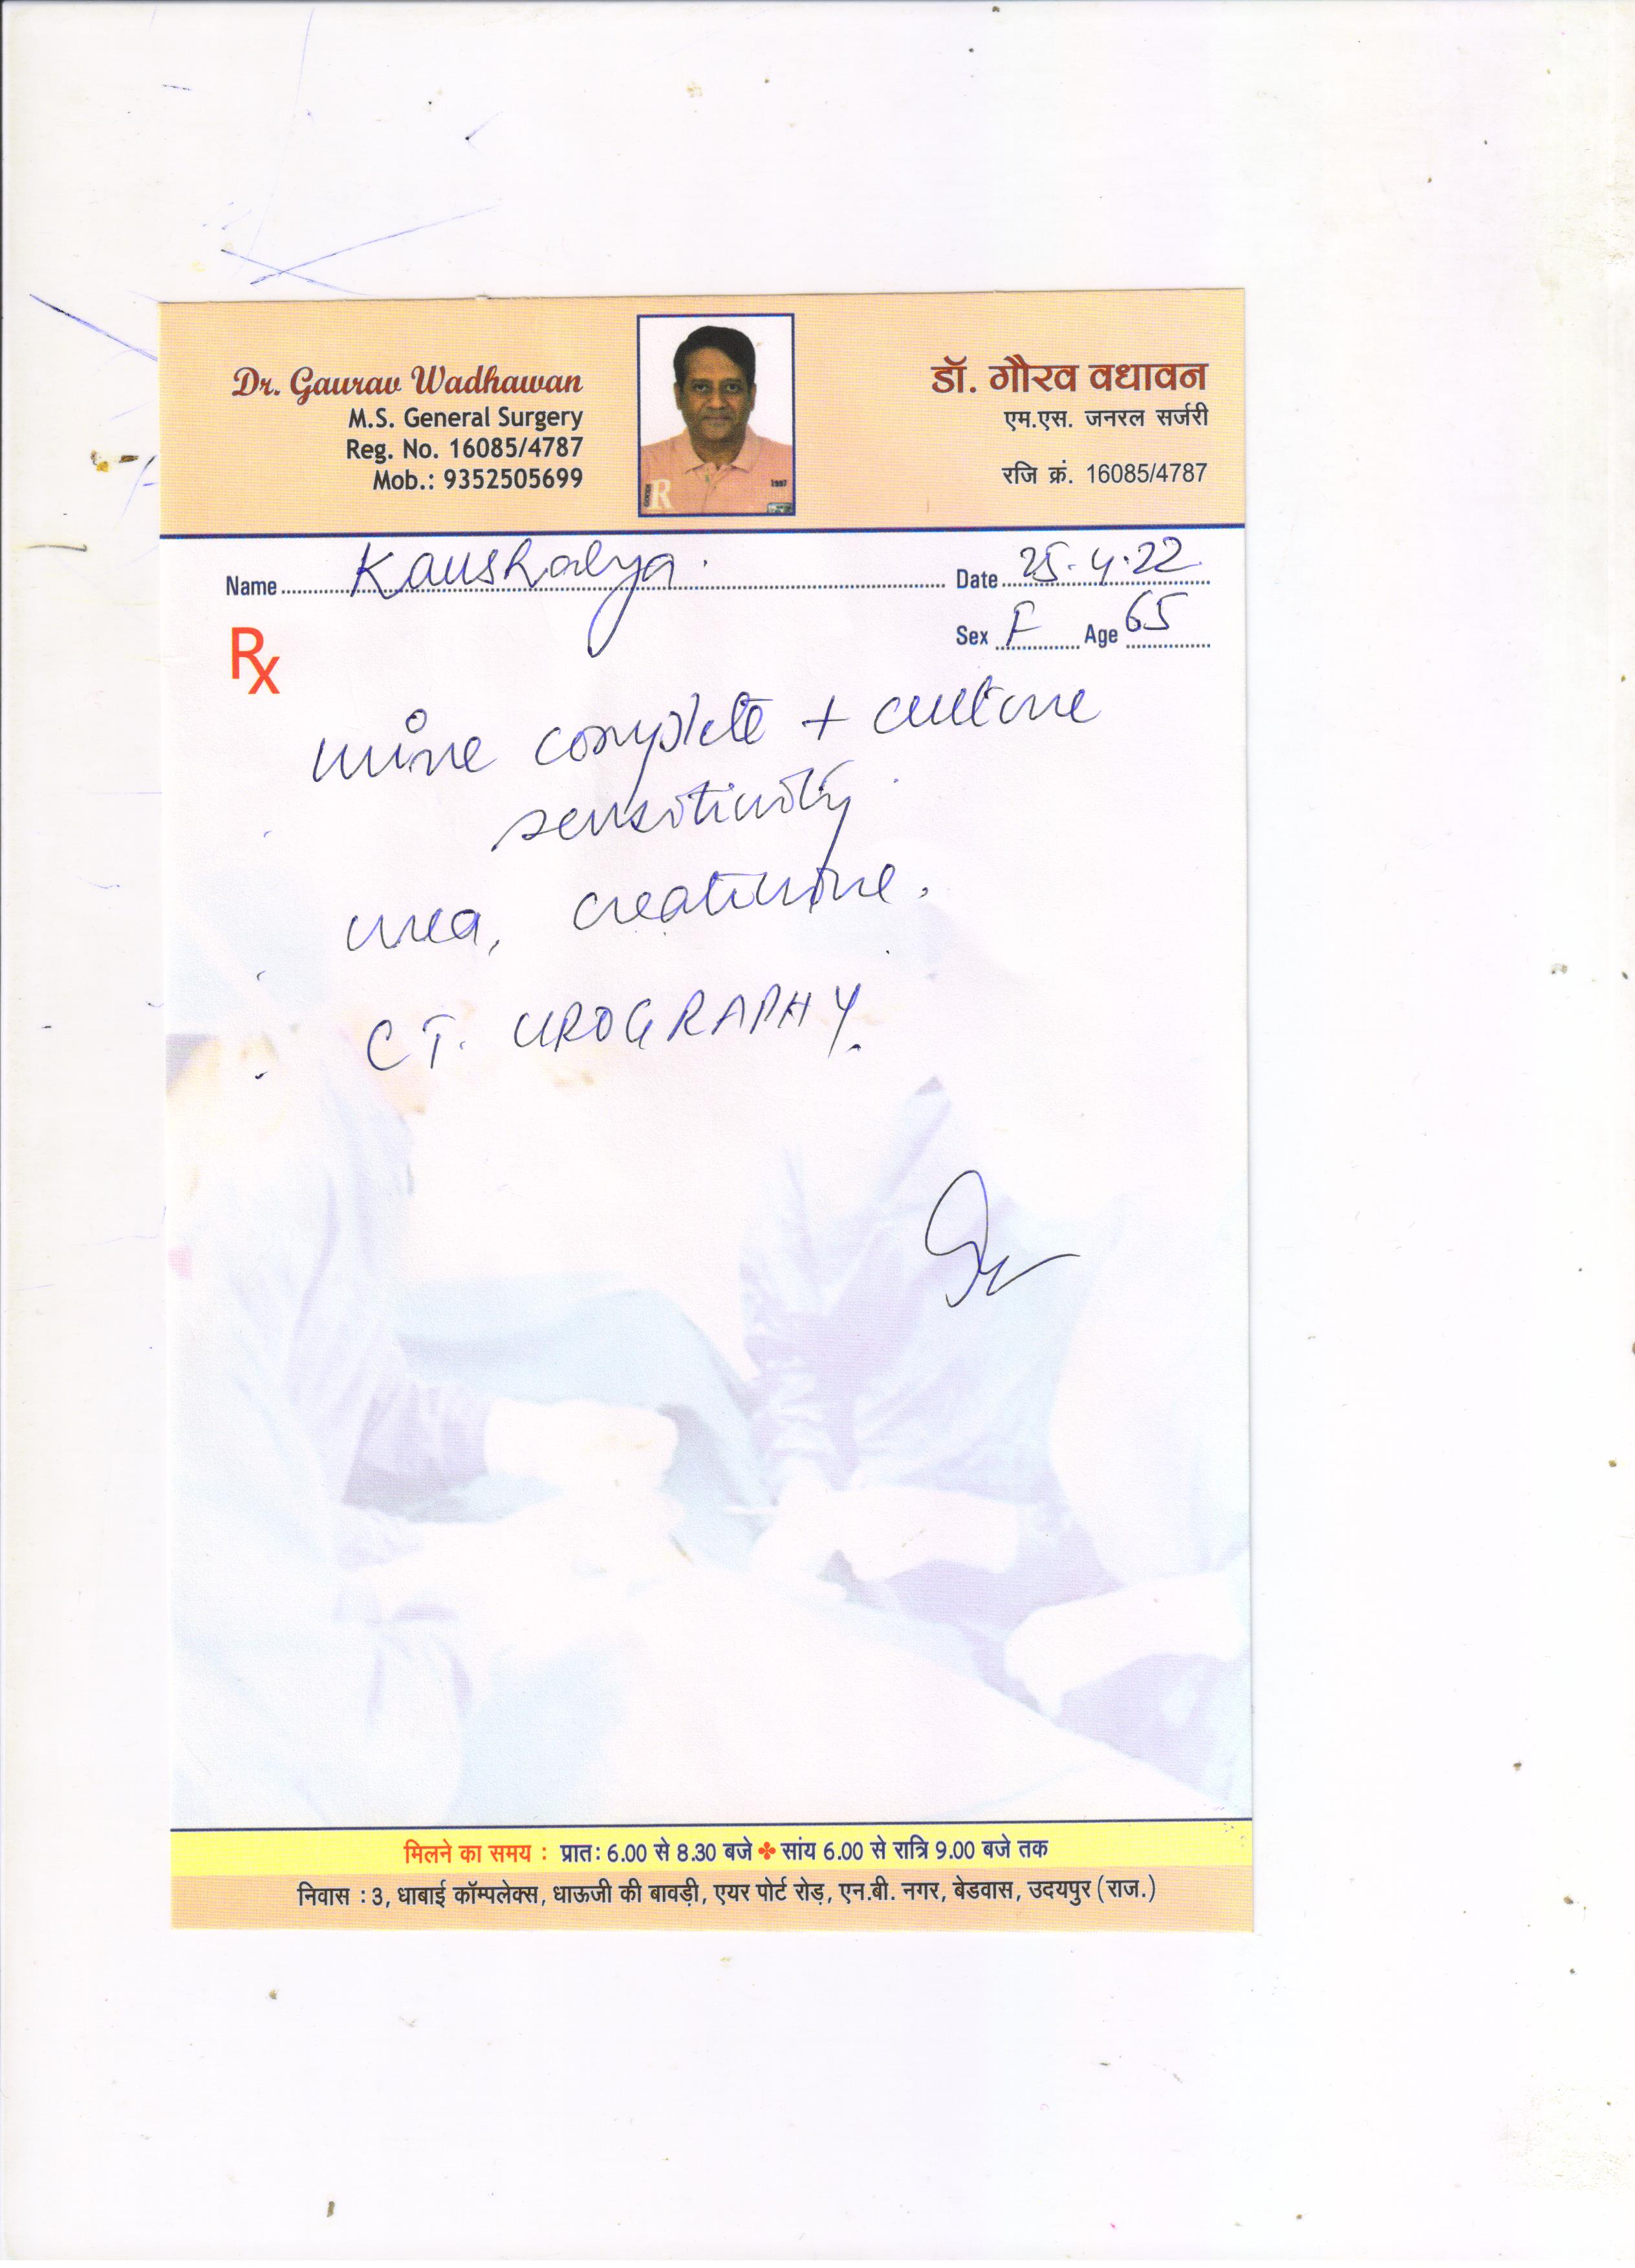 Dr. Gaurav Wadhawan
M.S. General Surgery
Reg. No. 16085/4787
Mob.: 9352505699
डॉ. गौरव वधावन
एम.एस. जनरल सर्जरी
रजि क्रं. 16085/4787
R
1987
Name Kaushalya. Date 25.4.22
Sex F Age 65
Rx
urine complete + culture
sensitivity
urea, creatinine.
CT. UROGRAPHY.
मिलने का समय : प्रातः 6.00 से 8.30 बजे ✤ सांय 6.00 से रात्रि 9.00 बजे तक
निवास : 3, धाबाई कॉम्पलेक्स, धाऊजी की बावड़ी, एयर पोर्ट रोड़, एन.बी. नगर, बेडवास, उदयपुर (राज.)